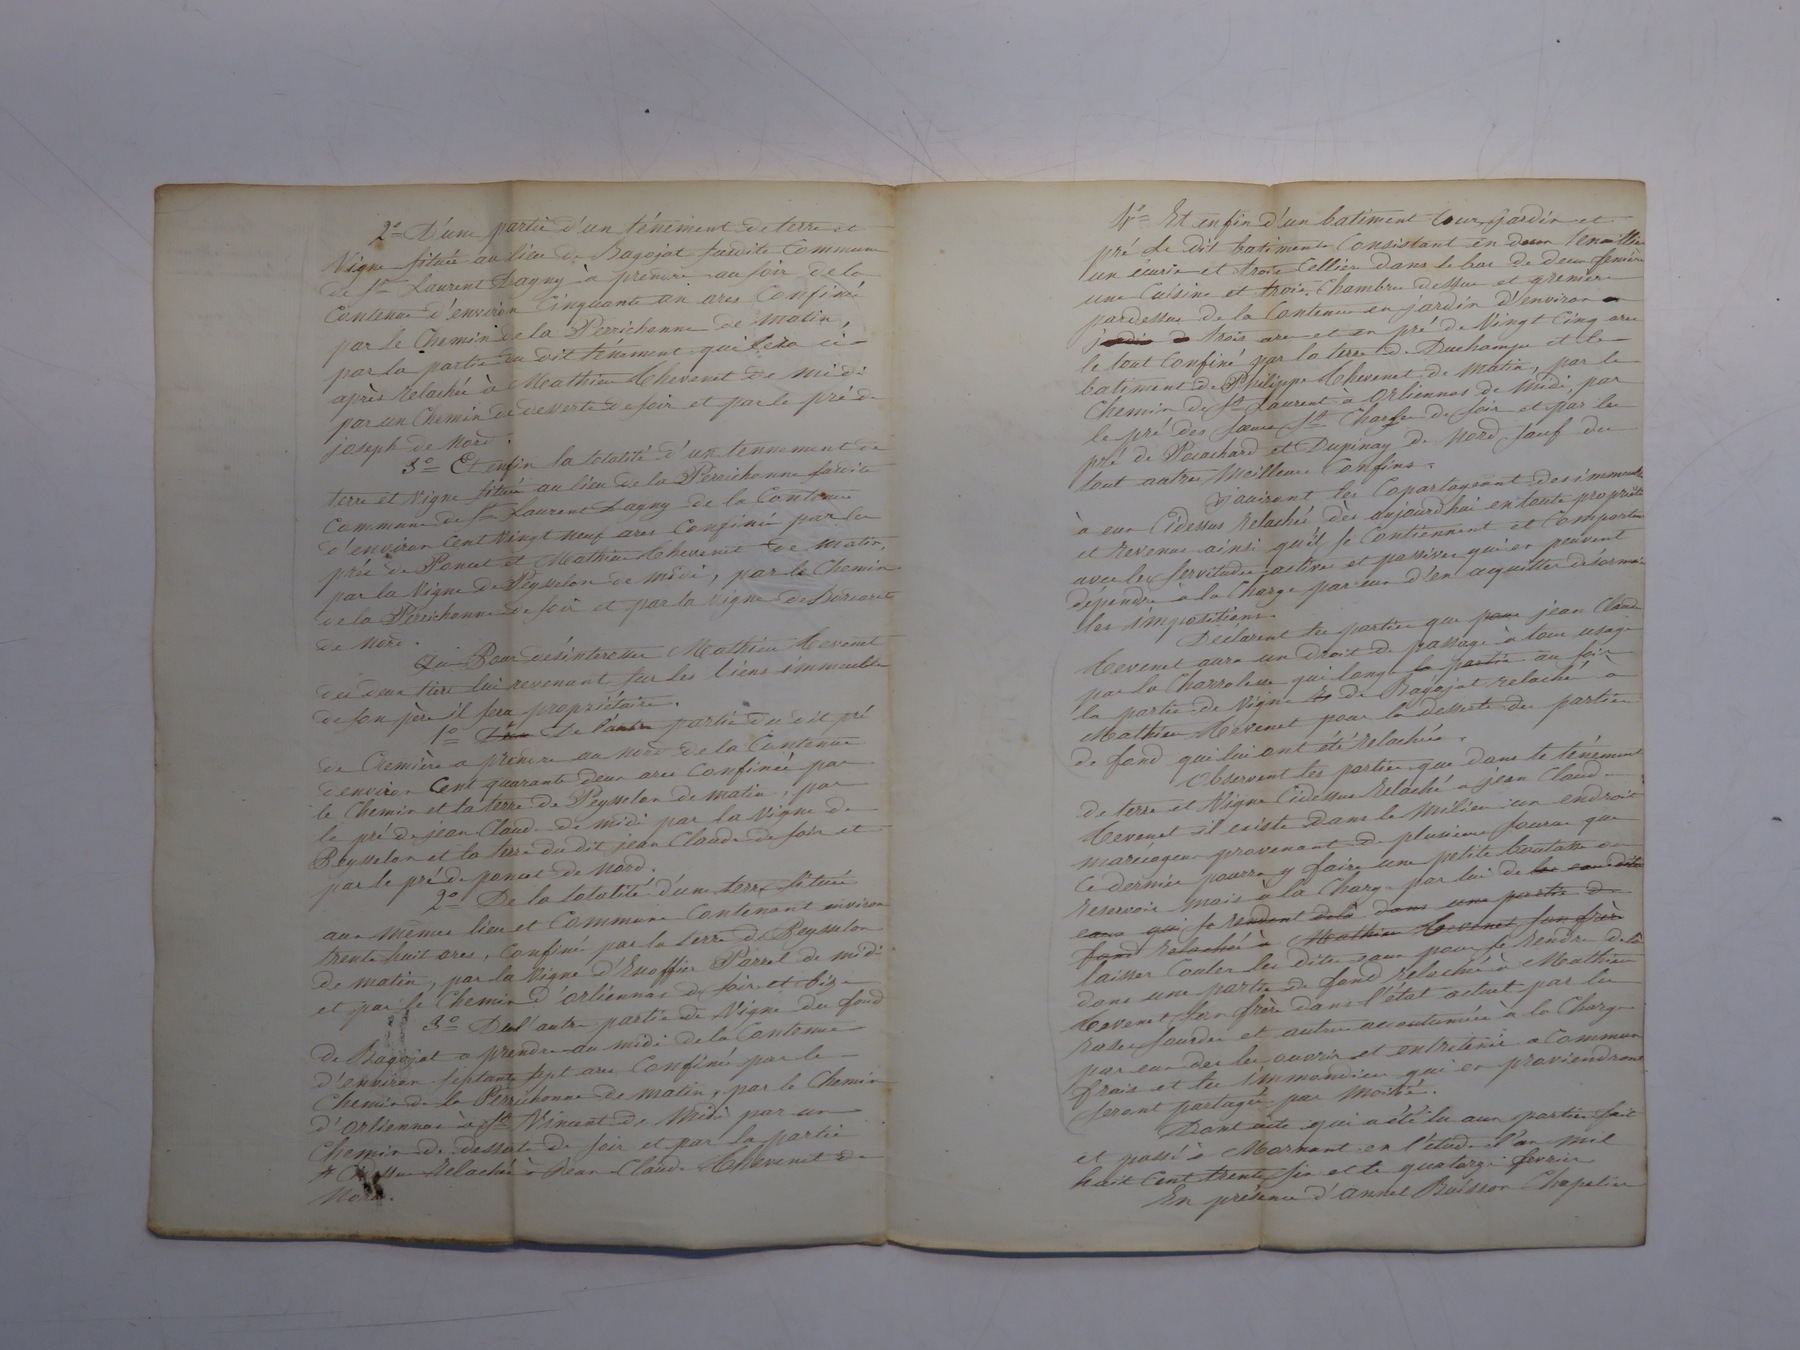 2° D'une partie d'un ténement de terre et
Vigne située au lieu de Bagojat susdite Commune
de St Laurent Dagny à prendre au soir de la
Contenue d'environ Cinquante un ares Confiné
par le Chemin de la Perrichonne de matin
par la partie du dit ténement qui sera ci-
après relaché à Mathieu Thevenet de midi
par un Chemin de desserte de soir et par le pré de
joseph de Nord.
3° Et enfin la totalité d'un tennement de
terre et Vigne située au lieu de la Perrichonne susdite
Commune de St Laurent Dagny de la Contenue
d'environ Cent Vingt neuf ares Confiné par les
prés de Poncet et Mathieu Thevenet de matin,
par la Vigne de Peysselon de midi, par le Chemin
de la Perrichonne de soir et par la Vigne de
de Nord.
Pour désinteresser Mathieu Tevenet
des deux tiers lui revenant sur les biens immeubles
de son père il sera propriétaire.
1° De l'autre partie du dit pré
de Cremière a prendre au nord de la Contenue
d'environ Cent quarante deux ares Confinée par
le Chemin et la terre de Peysselon de matin, par
le pré de jean Claude de midi par la Vigne de
Peysselon et la terre du dit jean Claude de soir et
par le pré de poncet de Nord.
2° De la totalité d'une terre située
aux mêmes lieu et Commune Contenant environ
trente huit ares, Confiné par la terre de Peysselon
de matin, par la Vigne d'Enoffier Parrel de midi
et par le Chemin d'orliennas de soir et bize
3° De l'autre partie de Vigne du fond
de Bagojat a prendre au midi de la Contenue
d'environ septante sept ares Confinée par le
Chemin de la Perrichonne de matin, par le Chemin
d'orliennas à St Vincent de Midi par un
Chemin de desserte de soir et par la partie
Ci dessus relachée à Jean Claude Thevenet de
Nord.
4° Et enfin d'un batiment Cour jardin et
pré le dit batiments Consistant en deux
un écurie et trois Cellier dans le bas de deux fenière
une Cuisine et trois Chambre dessus et greniers
pardessus de la Contenue en jardin d'environ
trois ares et en pré de Vingt Cinq ares
le tout Confiné par la terre de Duchamps et le
batiment de Philippe Thevenet de matin, par le
Chemin de St Laurent à Orliennas de Midi, par
le pré des soeurs St Charles de soir et par les
pré de et Dupinay de Nord sauf du
tout autres Meilleurs Confins.
Jouiront les Copartageant des immeubles
à eux Cidessus relachés dès aujourdhui en toute propriété
et revenus ainsi qu'il se Contiennent et Comportent
avec les servitudes actives et passives qui en peuvent
dépendre à la Charge par eux d'en acquitter désormais
les impositions.
Déclarent les parties que jean Claude
Tevenet aura un droit de passage à tous usage
par la Charrolesse qui longe la partie au soir
la partie de Vigne de Bagojat relaché à
Mathieu Thevenet pour la desserte des parties
de fond qui lui ont été relachée.
Observent les parties que dans le tenement
de terre et Vigne Cidessus relaché a jean Claude
Tevenet il existe dans le Milieu un endroit
marécageux provenant de plusieurs sources que
Ce dernier pourra y faire une petite boutasse ou
reservoir mais à la Charge par lui de les eaux dites
eaux qui se rendent delà dans une partie de
fond relaché à Mathieu Tevenet son frère
laisser Couler les dites eaux pour se rendre delà
dans une partie de fond relaché à Mathieu
Tevenet son frère dans l'état actuel par les
rases sourdes et autres accoutumées à la Charge
par eux de les ouvrir et entretenir a Commun
frais et les immondices qui en proviendront
seront partagée par Moitié.
Dont acte qui a été lu aux parties fait
et passé à Mornant en l'étude l'an mil
huit Cent trente six et le quatorze fevrier
En présence d'annet Buisson Chapelier